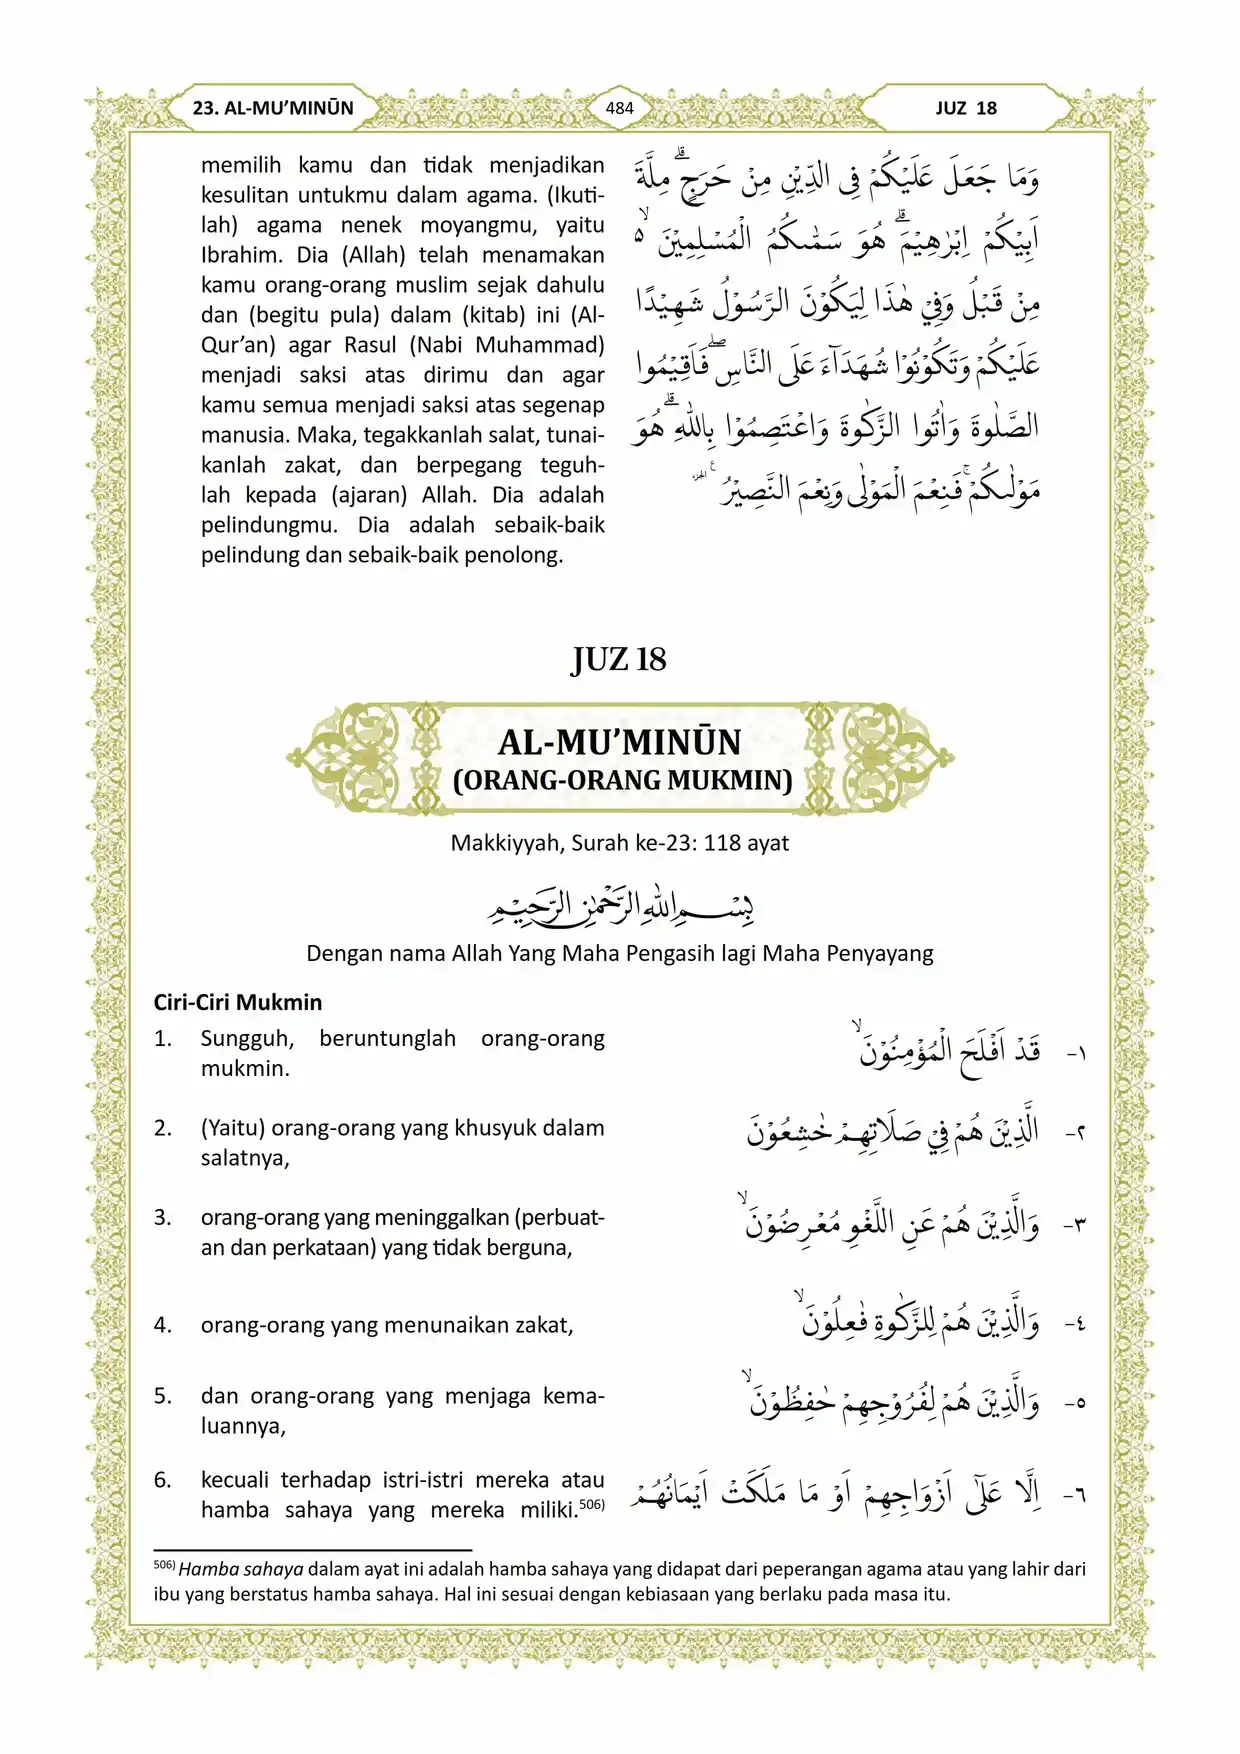 23. AL-MU’MINŪN
484
JUZ 18
memilih kamu dan tidak menjadikan
kesulitan untukmu dalam agama. (Ikuti-
lah) agama nenek moyangmu, yaitu
Ibrahim. Dia (Allah) telah menamakan
kamu orang-orang muslim sejak dahulu
dan (begitu pula) dalam (kitab) ini (Al-
Qur’an) agar Rasul (Nabi Muhammad)
menjadi saksi atas dirimu dan agar
kamu semua menjadi saksi atas segenap
manusia. Maka, tegakkanlah salat, tunai-
kanlah zakat, dan berpegang teguh-
lah kepada (ajaran) Allah. Dia adalah
pelindungmu. Dia adalah sebaik-baik
pelindung dan sebaik-baik penolong.
وَمَا جَعَلَ عَلَيْكُمْ فِى الدِّيْنِ مِنْ حَرَجٍۗ مِلَّةَ
اَبِيْكُمْ اِبْرٰهِيْمَۗ هُوَ سَمّٰىكُمُ الْمُسْلِمِيْنَ ۙ٥
مِنْ قَبْلُ وَفِيْ هٰذَا لِيَكُوْنَ الرَّسُوْلُ شَهِيْدًا
عَلَيْكُمْ وَتَكُوْنُوْا شُهَدَاۤءَ عَلَى النَّاسِۖ فَاَقِيْمُوا
الصَّلٰوةَ وَاٰتُوا الزَّكٰوةَ وَاعْتَصِمُوْا بِاللّٰهِۗ هُوَ
مَوْلٰىكُمْۚ فَنِعْمَ الْمَوْلٰى وَنِعْمَ النَّصِيْرُ ࣖ الجزء
JUZ 18
AL-MU’MINŪN
(ORANG-ORANG MUKMIN)
Makkiyyah, Surah ke-23: 118 ayat
بِسْمِ اللّٰهِ الرَّحْمٰنِ الرَّحِيْمِ
Dengan nama Allah Yang Maha Pengasih lagi Maha Penyayang
Ciri-Ciri Mukmin
1. Sungguh, beruntunglah orang-orang
mukmin.
١- قَدْ اَفْلَحَ الْمُؤْمِنُوْنَۙ
2. (Yaitu) orang-orang yang khusyuk dalam
salatnya,
٢- الَّذِيْنَ هُمْ فِيْ صَلَاتِهِمْ خٰشِعُوْنَ
3. orang-orang yang meninggalkan (perbuat-
an dan perkataan) yang tidak berguna,
٣- وَالَّذِيْنَ هُمْ عَنِ اللَّغْوِ مُعْرِضُوْنَۙ
4. orang-orang yang menunaikan zakat,
٤- وَالَّذِيْنَ هُمْ لِلزَّكٰوةِ فٰعِلُوْنَۙ
5. dan orang-orang yang menjaga kema-
luannya,
٥- وَالَّذِيْنَ هُمْ لِفُرُوْجِهِمْ حٰفِظُوْنَۙ
6. kecuali terhadap istri-istri mereka atau
hamba sahaya yang mereka miliki.506)
٦- اِلَّا عَلٰٓى اَزْوَاجِهِمْ اَوْ مَا مَلَكَتْ اَيْمَانُهُمْ
506) Hamba sahaya dalam ayat ini adalah hamba sahaya yang didapat dari peperangan agama atau yang lahir dari
ibu yang berstatus hamba sahaya. Hal ini sesuai dengan kebiasaan yang berlaku pada masa itu.